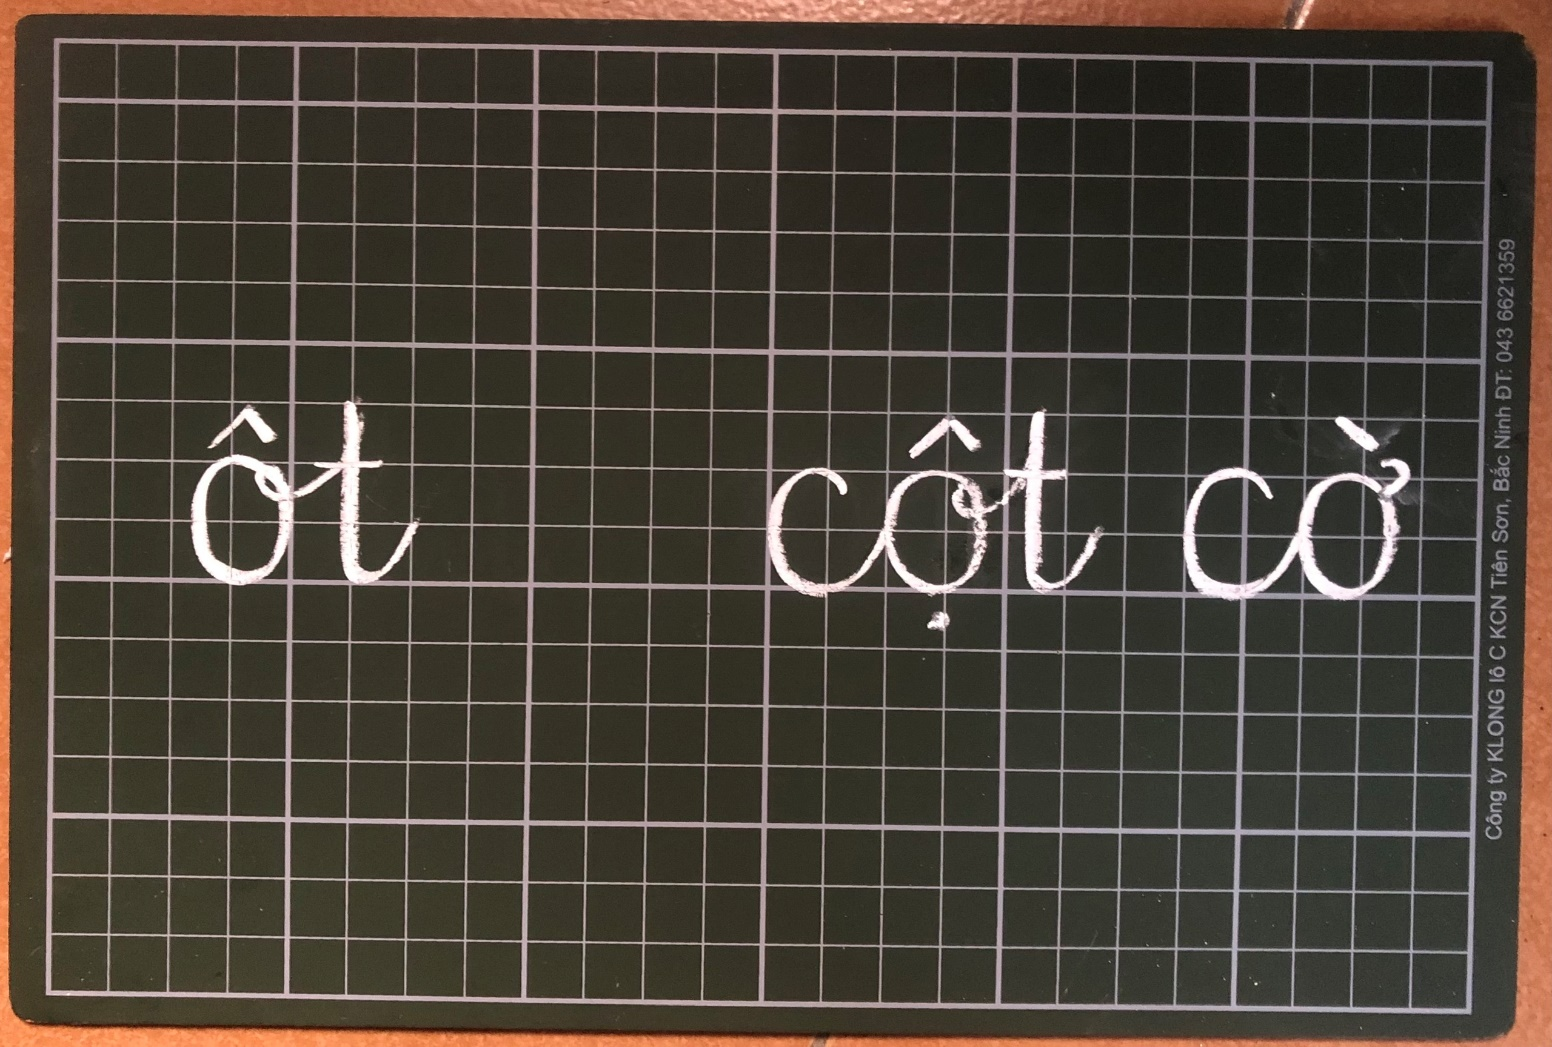 ôt cột cờ
Công ty KLONG lô C KCN Tiên Sơn, Bắc Ninh ĐT: 043 6621359